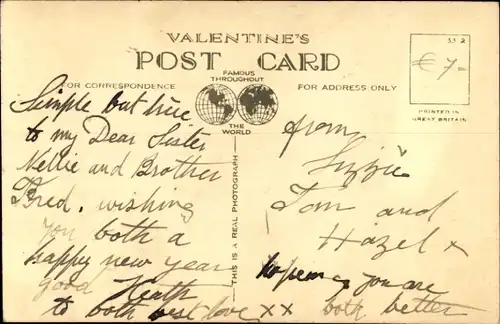 VALENTINE'S
POST CARD
FAMOUS
THROUGHOUT
THE
WORLD
FOR CORRESPONDENCE
FOR ADDRESS ONLY
33 2
€7-
PRINTED IN
GREAT BRITAIN
THIS IS A REAL PHOTOGRAPH
Simple but true
to my Dear Sister
Nellie and Brother
Fred. wishing
you both a
happy new year
good Health
to both best love xx
from
Lizzie
Tom and
Hazel x
hopeing you are
both better